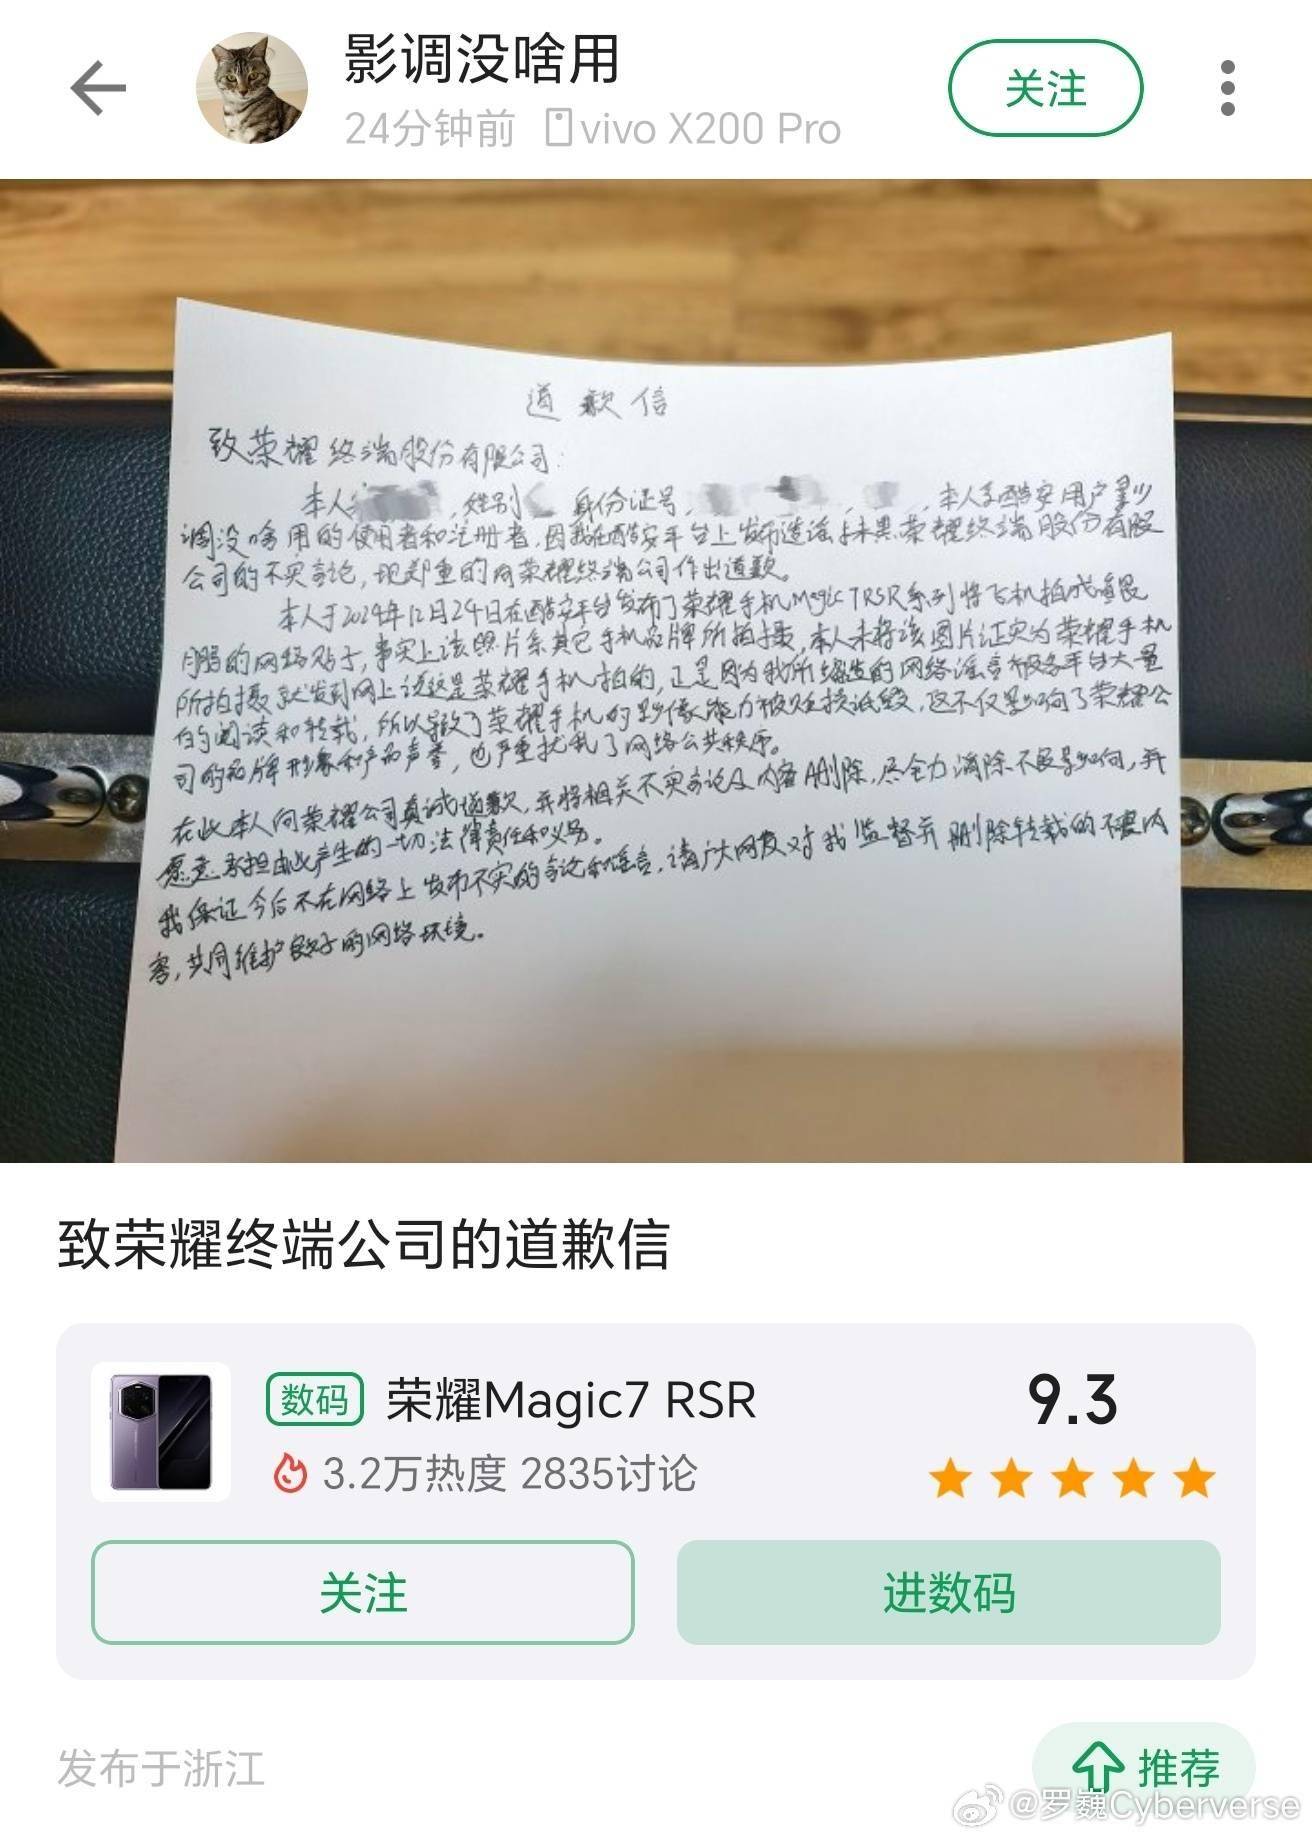 影调没啥用
24分钟前 vivo X200 Pro
关注
道歉信
致荣耀终端股份有限公司:
本人 ,姓别 身份证号, , ,本人系酷安用户影
调没啥用的使用者和注册者,因我在酷安平台上发布造谣抹黑荣耀终端股份有限
公司的不实言论,现郑重的向荣耀终端公司作出道歉。
本人于2024年12月24日在酷安平台发布了荣耀手机Magic7RSR系列将飞机拍成鲲
鹏的网络贴子,事实上该照片系其它手机品牌所拍摄,本人未将该图片证实为荣耀手机
所拍摄就发到网上说这是荣耀手机拍的,正是因为我所编造的网络谣言被各平台大量
的阅读和转载,所以导致了荣耀手机的影像能力被贬损诋毁,这不仅影响了荣耀公
司的品牌形象和产品声誉,也严重扰乱了网络公共秩序。
在此本人向荣耀公司真诚道歉,并将相关不实言论及内容删除,尽全力消除不良影响,并
愿意承担由此产生的一切法律责任和义务。
我保证今后不在网络上发布不实的言论和谣言,请广大网友对我监督并删除转载的不实内
容,共同维护良好的网络环境。
致荣耀终端公司的道歉信
数码 荣耀Magic7 RSR
9.3
3.2万热度 2835讨论
关注
进数码
发布于浙江
推荐
@罗巍Cyberverse